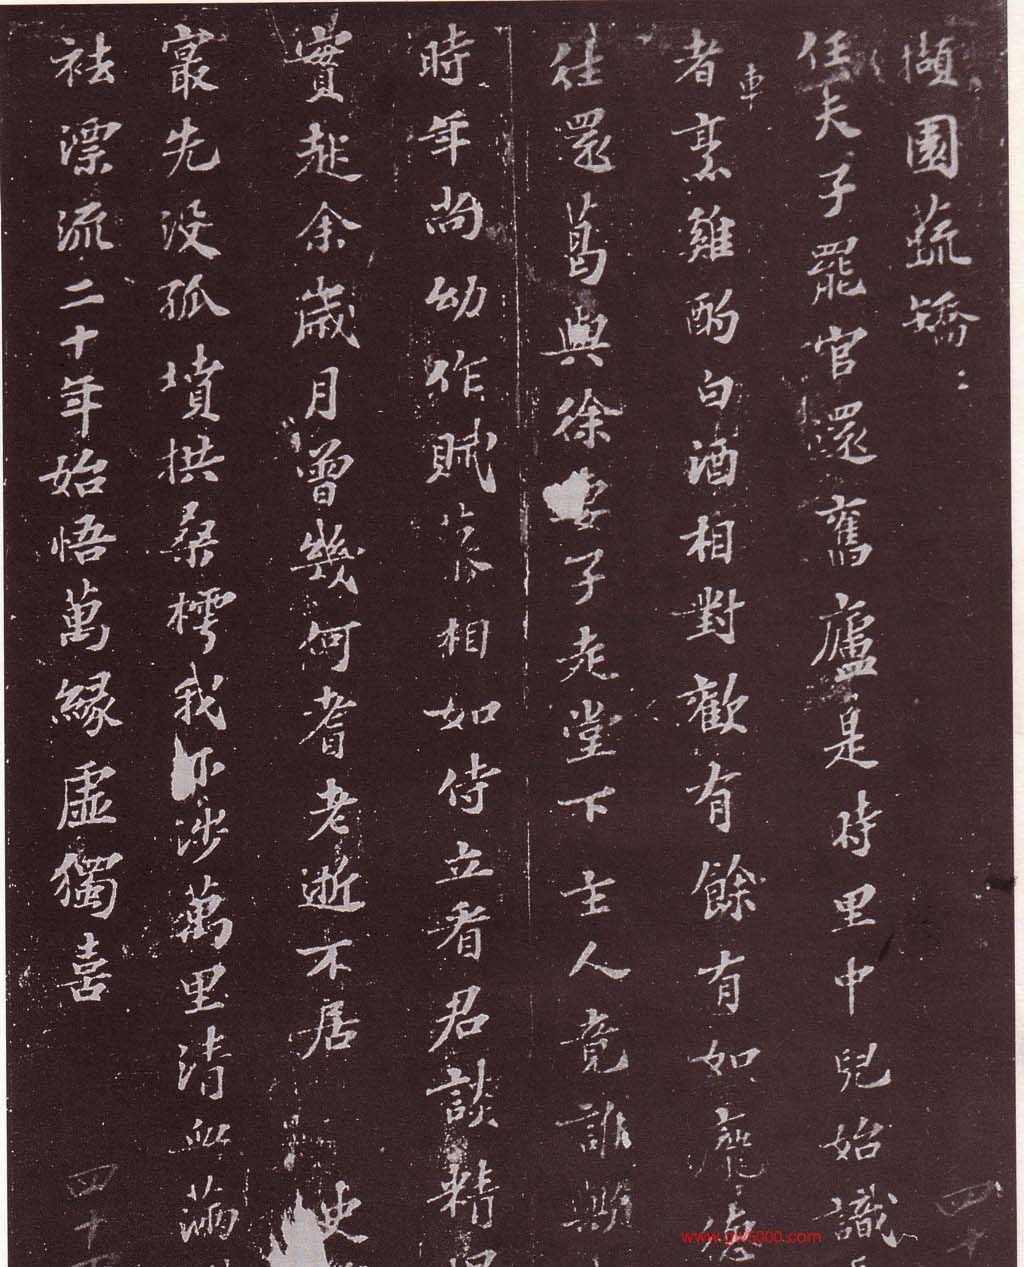 擷園蔬矯〻
四十
任夫子罷官還舊廬是時里中兒始識
者車烹雞酌白酒相對歡有餘有如龐德
往還葛與徐妻子走堂下主人竟誰歟
時年尚幼作賦慕相如侍立看君談精
實起余歲月曾幾何耆老逝不居 史
冣先没孤墳拱桑樗我亦涉萬里清血滿
袪漂流二十年始悟萬緣虛獨喜
四十